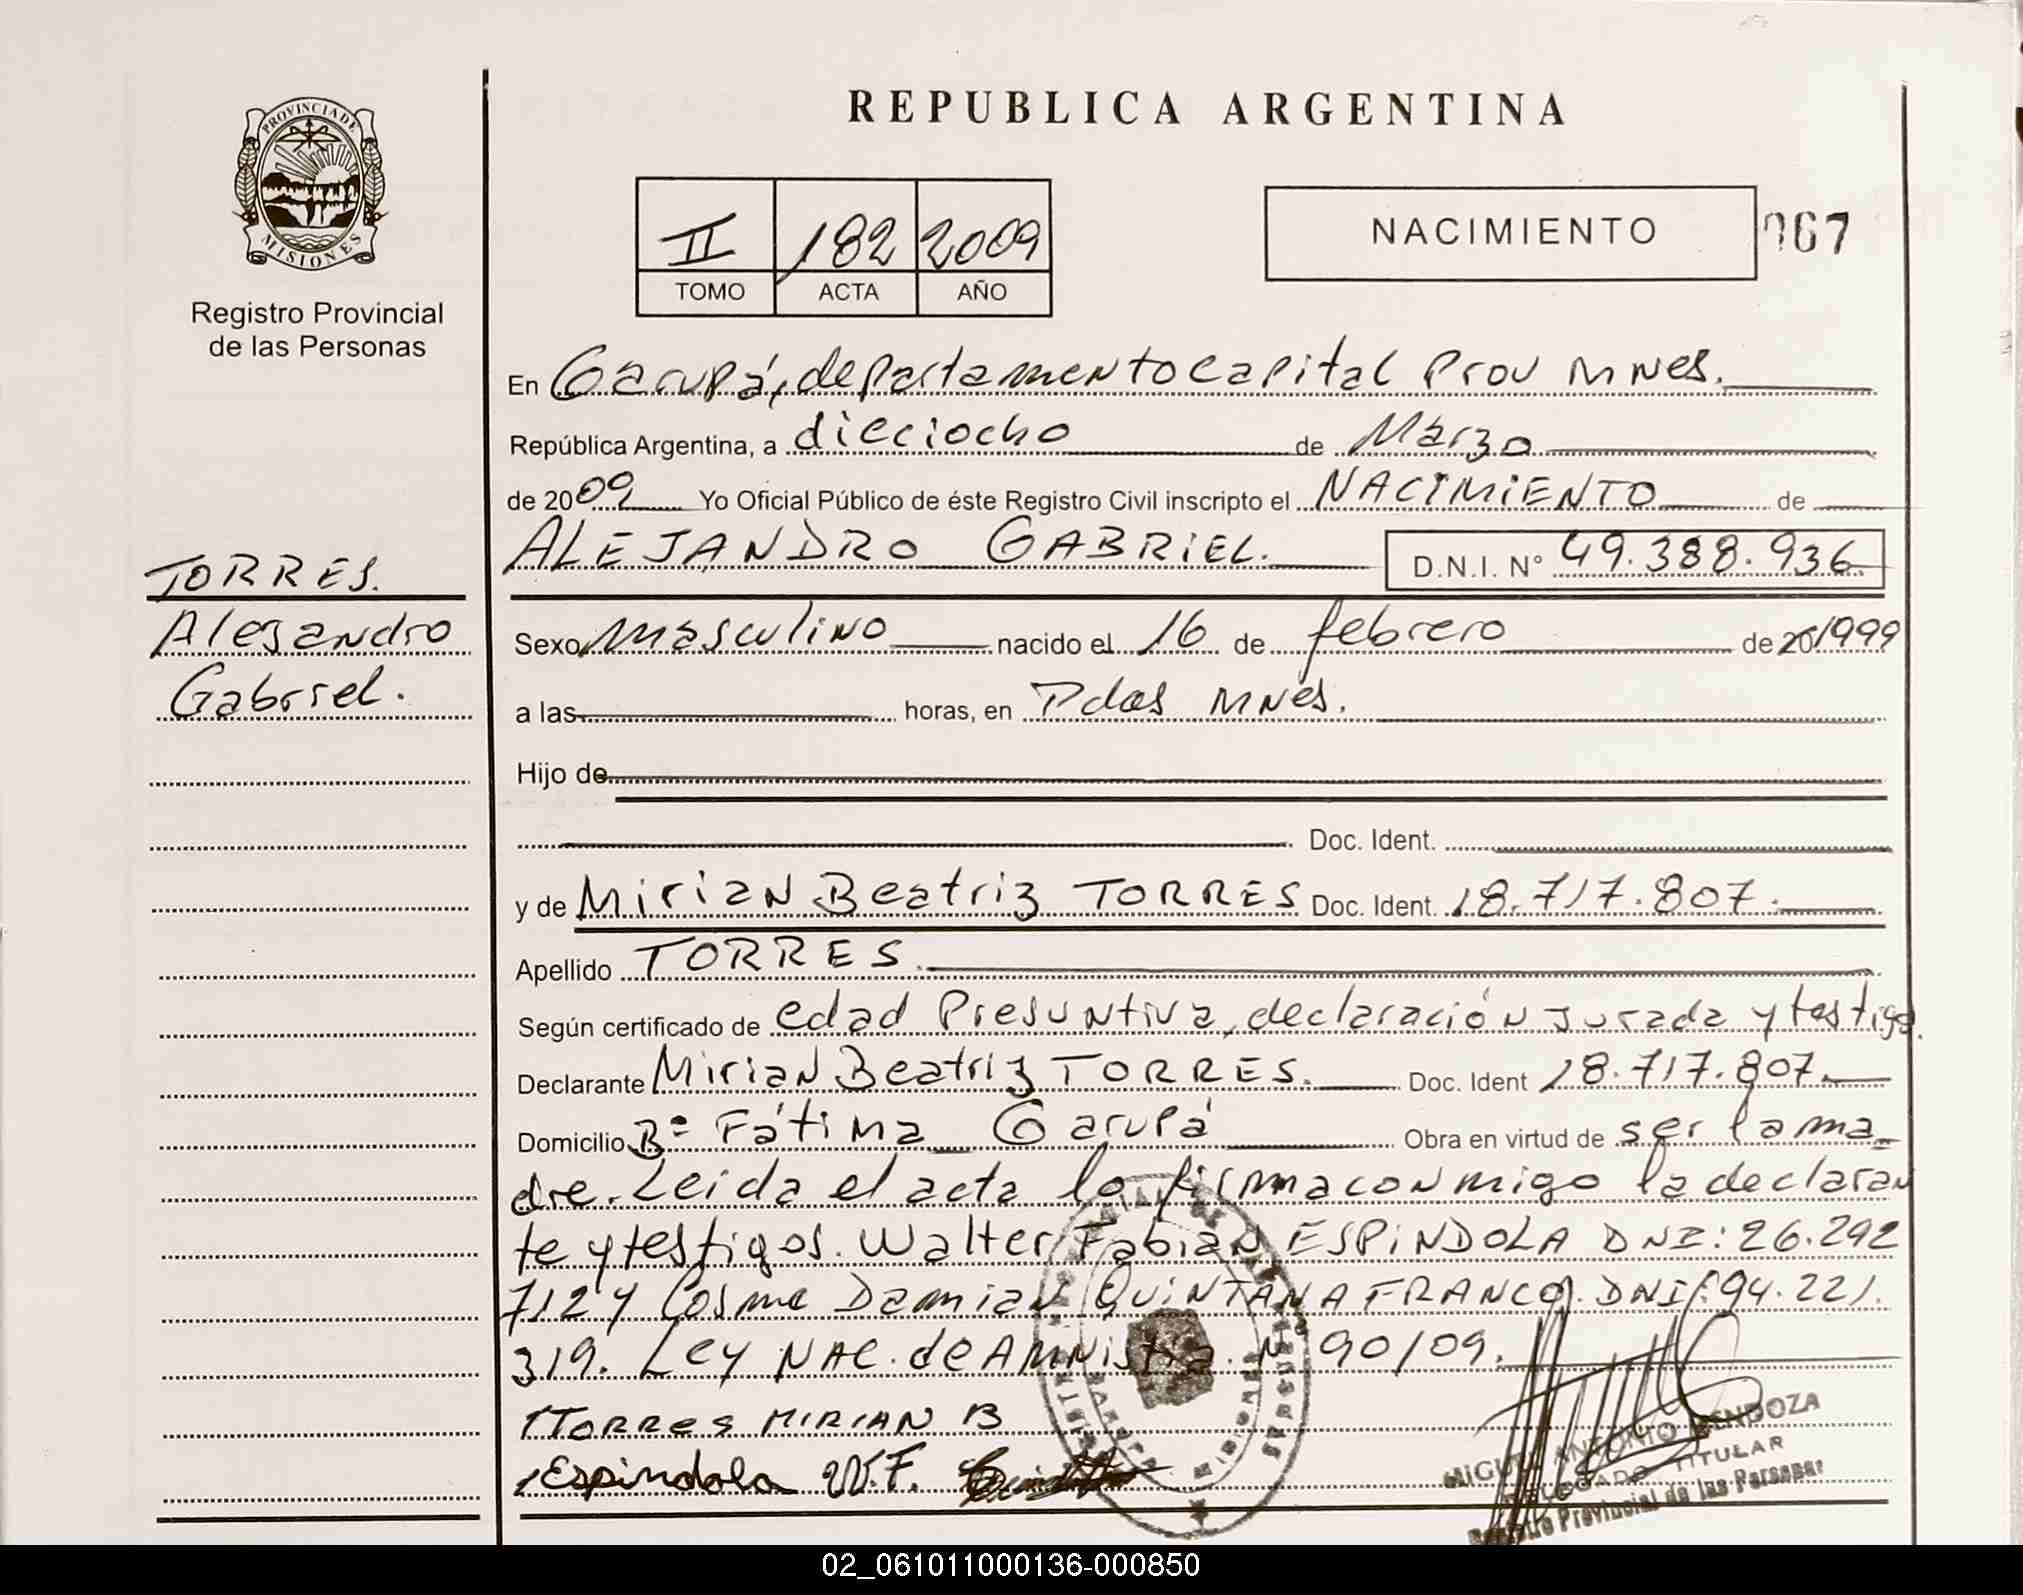 REPUBLICA ARGENTINA
PROVINCIA DE
MISIONES
Registro Provincial
de las Personas
II 182 2009
TOMO ACTA AÑO
NACIMIENTO
067
En Garupá, departamento capital Prov Mnes.
República Argentina, a dieciocho de Marzo
de 2009 Yo Oficial Público de éste Registro Civil inscripto el NACIMIENTO de
ALEJANDRO GABRIEL. D.N.I. N° 49.388.936
TORRES.
Alejandro
Gabriel.
Sexo masculino nacido el 16 de febrero de 20 1999
a las horas, en Pdas Mnes.
Hijo de
Doc. Ident.
y de Mirian Beatriz TORRES Doc. Ident. 18.717.807.
Apellido TORRES.
Según certificado de edad Presuntiva, declaración jurada y testigo.
Declarante Mirian Beatriz TORRES. Doc. Ident 18.717.807.
Domicilio B° Fátima Garupá Obra en virtud de ser la ma_
dre. Leida el acta la firma conmigo la declaran
te y testigos. Walter Fabian ESPINDOLA DNI: 26.292
712 y Cosme Damian QUINTANA FRANCO. DNI: 94.221.
319. Ley NAC. de AMNistia. N 90/09.
TORRES MIRIAN B
Espindola W.F.
MIGUEL ANTONIO MENDOZA
DELEGADO TITULAR
Registro Provincial de las Personas
02_061011000136-000850